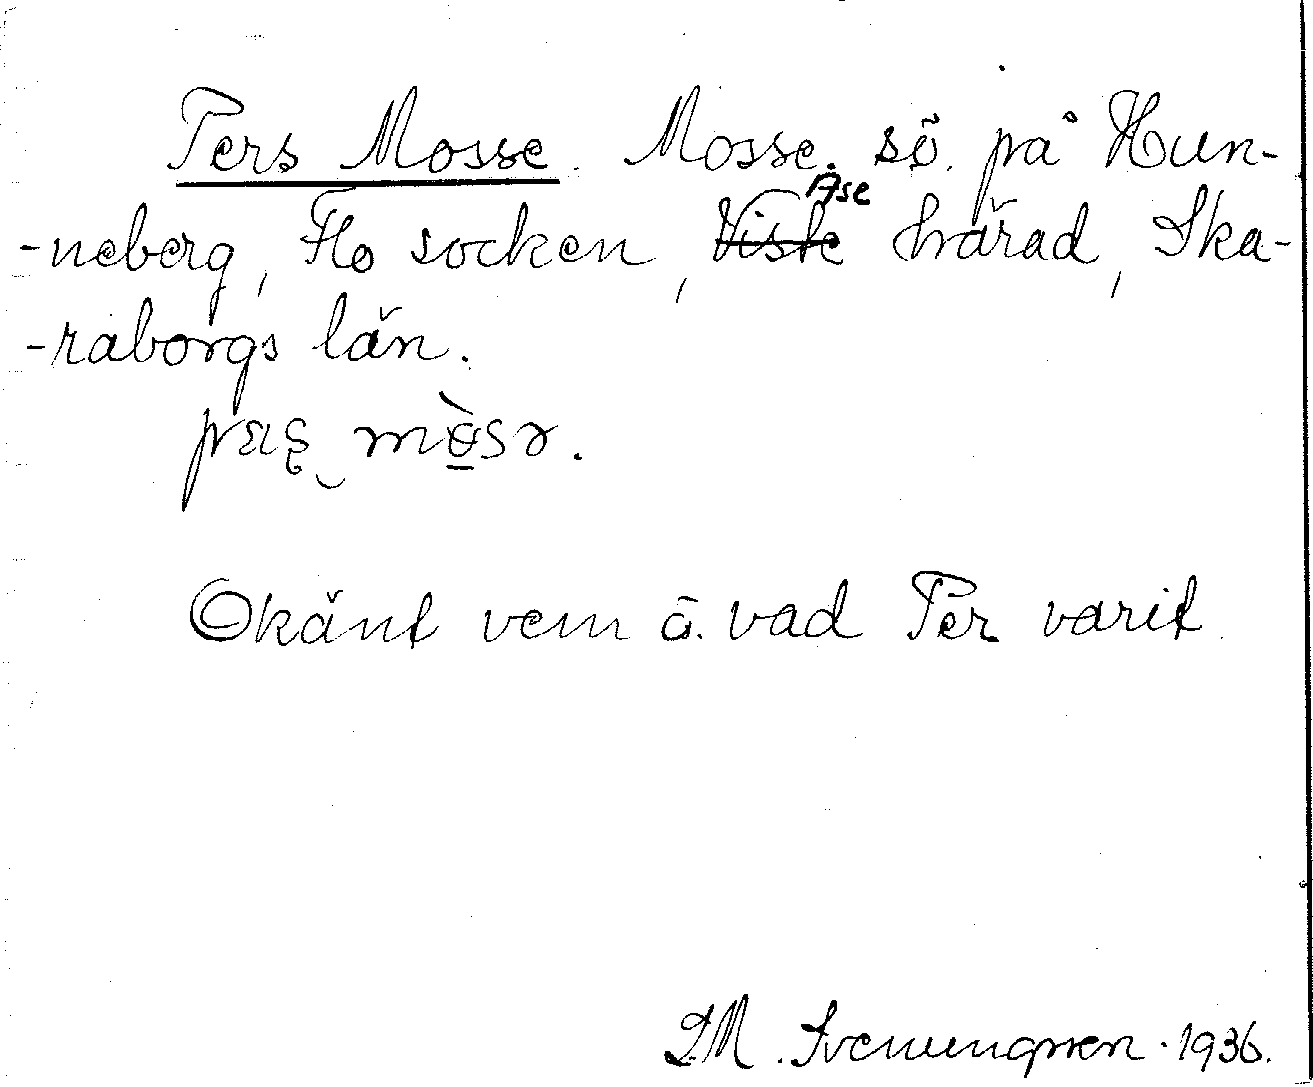 Pers Mosse. Mosse. sö. på Hun-
-neberg, Flo socken, Åse härad, Ska-
-raborgs län.
Okänt vem o. vad Per varit.
S.M. Svenungsen. 1936.